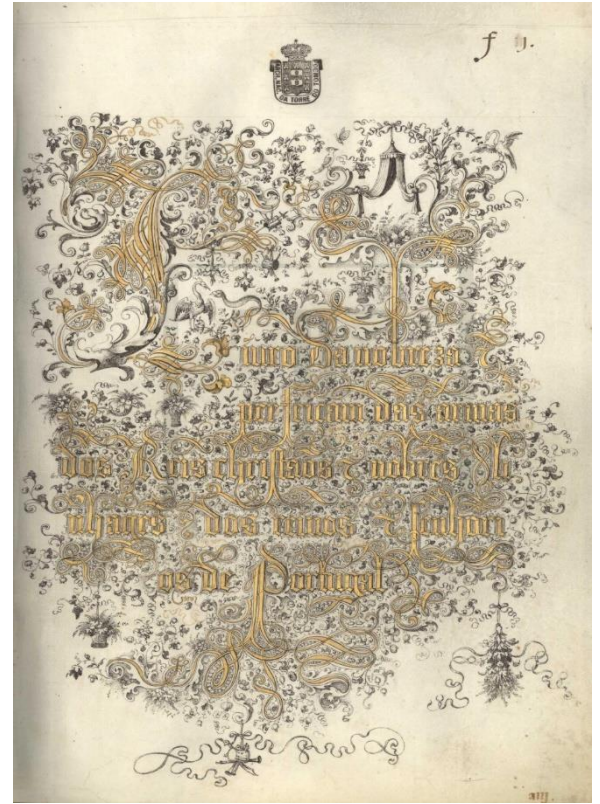 f 1.
DA TORRE
uro Da nobreza τ
perfeicam das armas
dos Reis christãos τ nobres li
nhages τ dos reinos τ senhori
os de Portugal